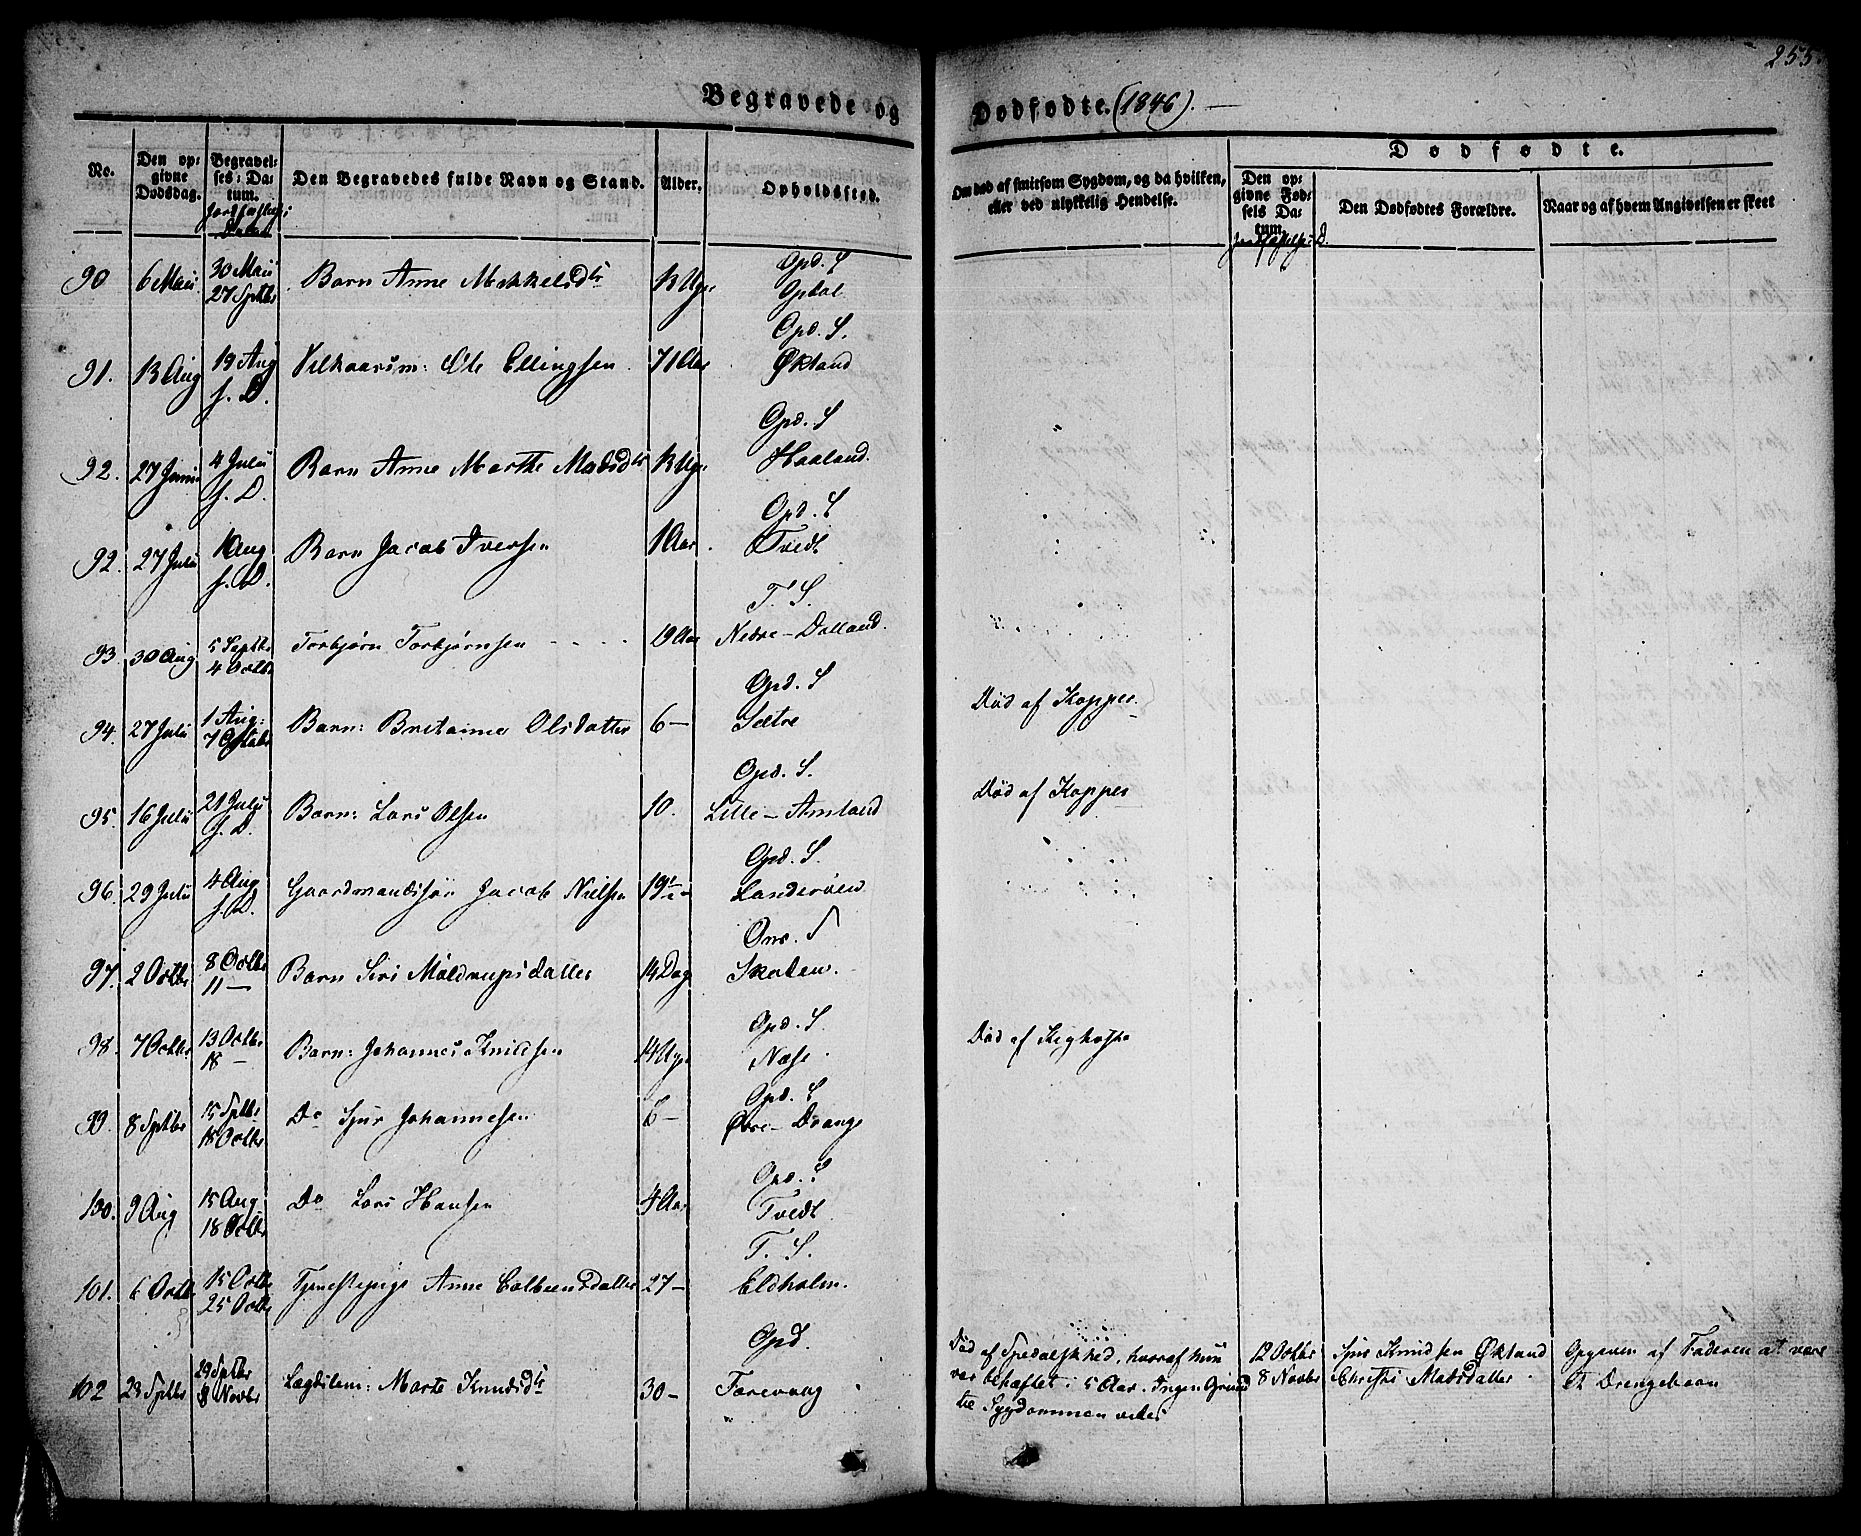 255
Begravede og Dødfødte. (1846). —
No.
Den opgivne Dødsdag.
Begravelses-Datum.
Den Begravedes fulde Navn og Stand.
Alder.
Opholdssted.
Om død af smitsom Sygdom, og da hvilken, eller ved ulykkelig Hendelse.
Dødfødte.
Den opgivne Fødsels Datum.
Den Dødfødtes Forældre.
Naar og af hvem Angivelsen er skeet
Opd. S
90 6 Maii 30 Maii Barn Anne Mikkelsdtr 13 Uger Opdal
27 Sptbr
Opd. S.
91. 13 Aug 19 Aug Vilkaarsm: Ole Ellingsen 71 Aar Økland
f. D.
Opd. S
92. 27 Junii 4 Julii Barn Anne Marthe Madsdtr 13 Uger Haaland.
f. D.
Opd. S
92. 27 Julii 1 Aug Barn Jacob Iversen 1 Aar. Tvedt
f. D.
T. S.
93 30 Aug 5 Septbr Torbjørn Torbjørnsen 19 Aar Nedre-Dalland.
4 Octbr
Opd. S
94. 27 Julii 1 Aug: Barn: Britanna Olsdatter 6 — Sætre Død af Kopper.
Opd. S.
95. 16 Julii 21 Julii Barn: Lars Olsen 10. Lille-Amland Død af Kopper
f. D.
Opd. S.
96. 29 Julii 4 Aug Gaardmandssøn Jacob Nielsen 19 Landerøen
f. D.
S
97. 2 Octbr 8 Octbr Barn Siri Møldrupsdatter 14 Dage
11 —
Opd. S.
98. 7 Octbr 13 Octbr Barn: Johannes Knudsen 14 Uger Næse. Død af Kighoste
18 —
Opd. S
99. 8 Sptbr 15 Sptbr Do Sjur Johannesen 6 — Øvre-Drange
18 Octbr
Opd. S
100. 9 Aug 15 Aug Do Lars Hansen 4 Aar Tvedt
18 Octbr
T. S.
101. 6 Octbr 15 Octbr Tjenestepige Anne Colbeensdatter 27 — Eldholm.
25 Octbr
Opd.
102 23 Sptbr 29 Sptbr Lægdslem: Marte Knudsdtr 30 — Farevaag
8 Novbr
Død af Spedalskhed, hvoraf hun
var behæftet i 5 Aar. Ingen Grund
til Sygdommen vides
12 Octbr
8 Novbr
Sjur Knudsen Økland
Christi Madsdatter.
Opgiven af Faderen at være
et Drengebarn